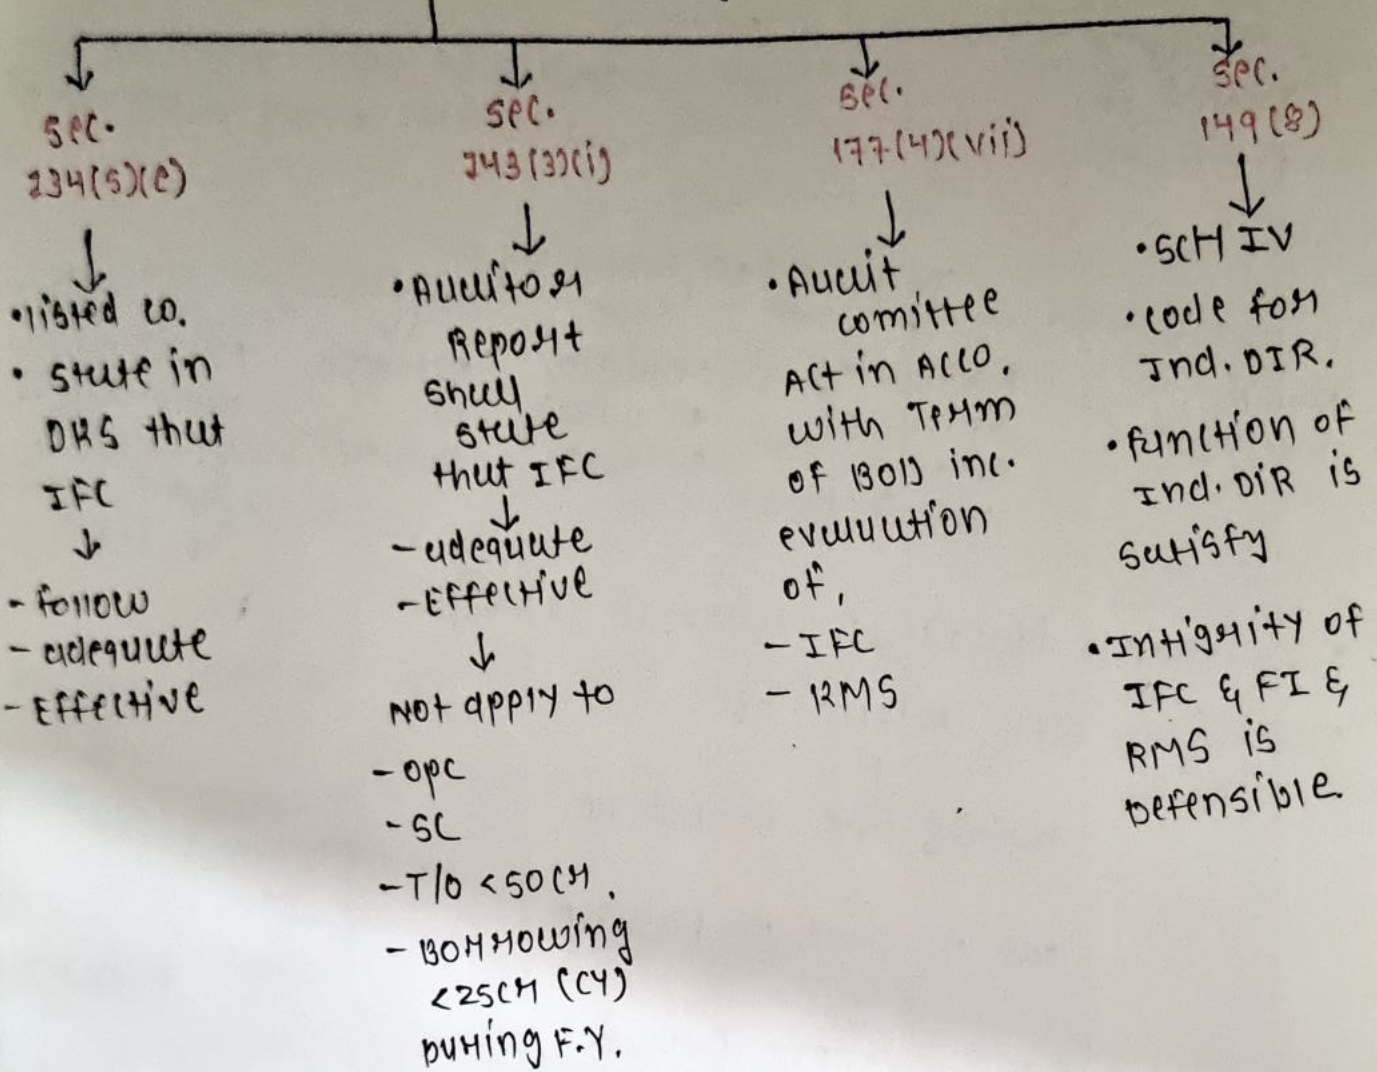 Sec.
134(5)(e)
•listed co.
• state in
DRS that
IFC
- follow
- adequate
- Effective
Sec.
143(3)(i)
•Auditor
Report
shall
state
that IFC
- adequate
- Effective
Not apply to
- OPC
- SC
- T/O <50Cr.
- Borrowing
<25Cr (CY)
During F.Y.
Sec.
177(4)(vii)
•Audit
comittee
Act in Acco.
with Term
of BOD inc.
evaluation
of,
- IFC
- RMS
Sec.
149(8)
•SCH IV
•code for
Ind. DIR.
•function of
Ind. DIR is
satisfy
•Intigrity of
IFC & FI &
RMS is
Defensible.